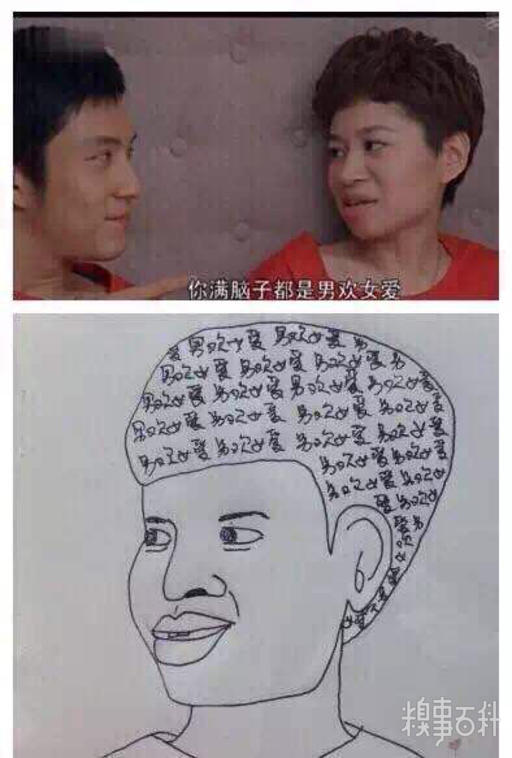 你满脑子都是男欢女爱
爱男欢女爱 男欢女爱 男
男欢女爱 男欢女爱 男欢女爱 男
男欢女爱 男欢女爱 男欢女爱 男欢女爱
男欢女爱 男欢女爱 男欢女爱 男欢女爱
男欢女爱 男欢女爱 男欢女爱 男欢女爱
男欢女爱 男欢女
男欢女爱 男欢女
爱男欢女
爱男
欢
女
糗事百科